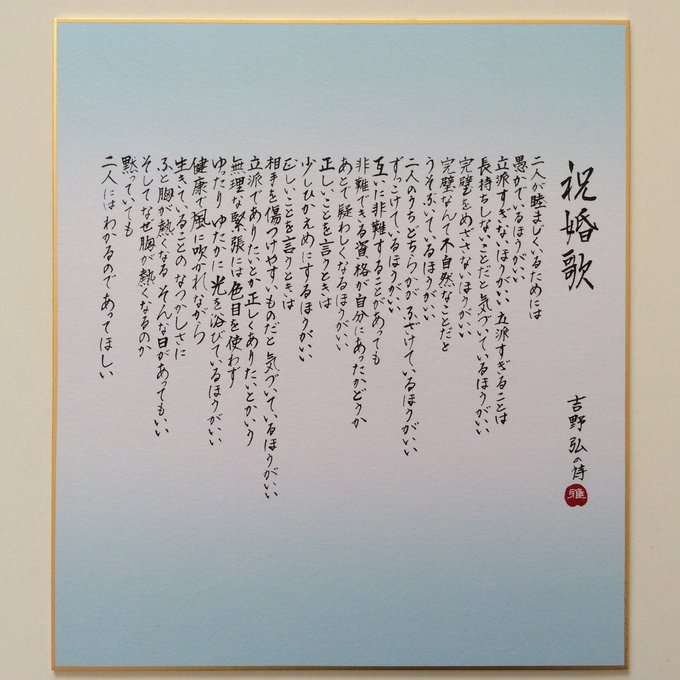 祝婚歌
吉野弘の詩
雅
二人が睦まじくいるためには
愚かでいるほうがいい
立派すぎないほうがいい 立派すぎることは
長持ちしないことだと気づいているほうがいい
完璧をめざさないほうがいい
完璧なんて不自然なことだと
うそぶいているほうがいい
二人のうちどちらかがふざけているほうがいい
ずっこけているほうがいい
互いに非難することがあっても
非難できる資格が自分にあったかどうか
あとで疑わしくなるほうがいい
正しいことを言うときは
少しひかえめにするほうがいい
正しいことを言うときは
相手を傷つけやすいものだと気づいているほうがいい
立派でありたいとか正しくありたいとかいう
無理な緊張には色目を使わず
ゆったりゆたかに光を浴びているほうがいい
健康で風に吹かれながら
生きていることのなつかしさに
ふと胸が熱くなる そんな日があってもいい
そしてなぜ胸が熱くなるのか
黙っていても
二人にはわかるのであってほしい